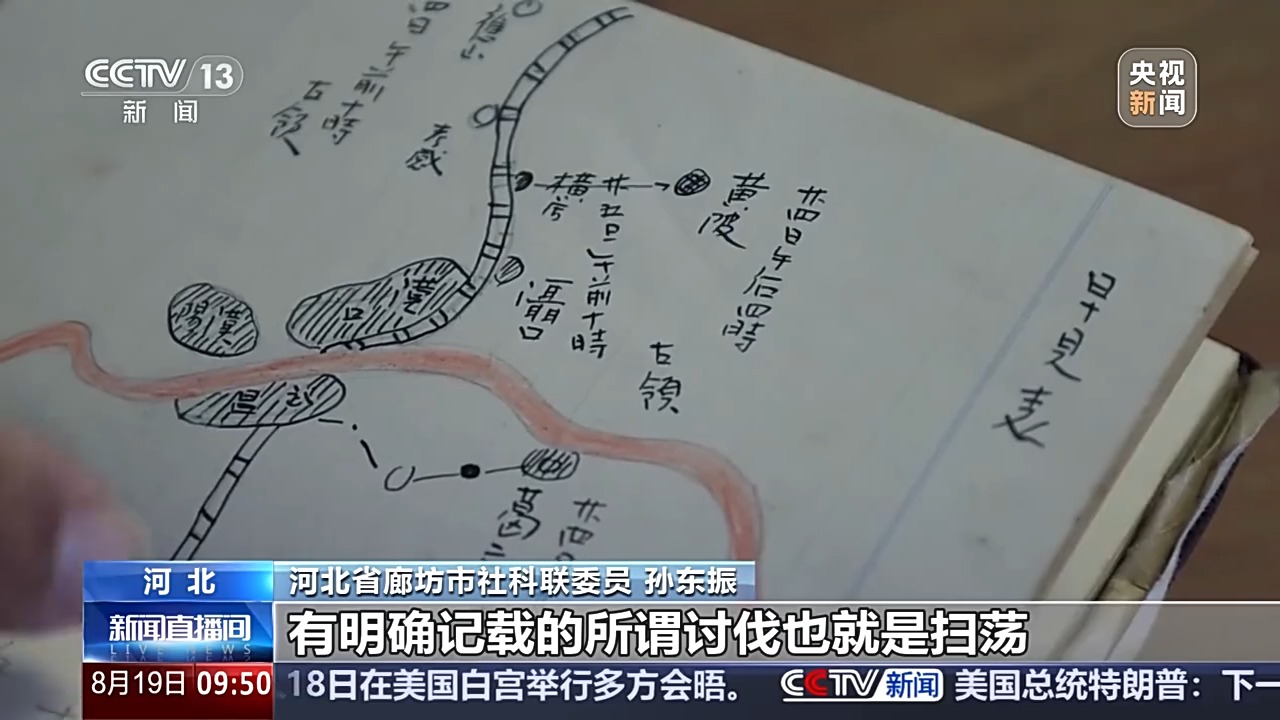 CCTV 13
新闻
央视
新闻
四日午前十時
占領
孝感
横
廿五日午前十時
黄陂
廿四日午后四時
占領
漢口
漢陽
武昌
葛
廿四
早見表
河北
河北省廊坊市社科联委员 孙东振
新闻直播间
LIVE NEWS
有明确记载的所谓讨伐也就是扫荡
8月19日 09:50
18日在美国白宫举行多方会晤。 CCTV新闻 美国总统特朗普：下一